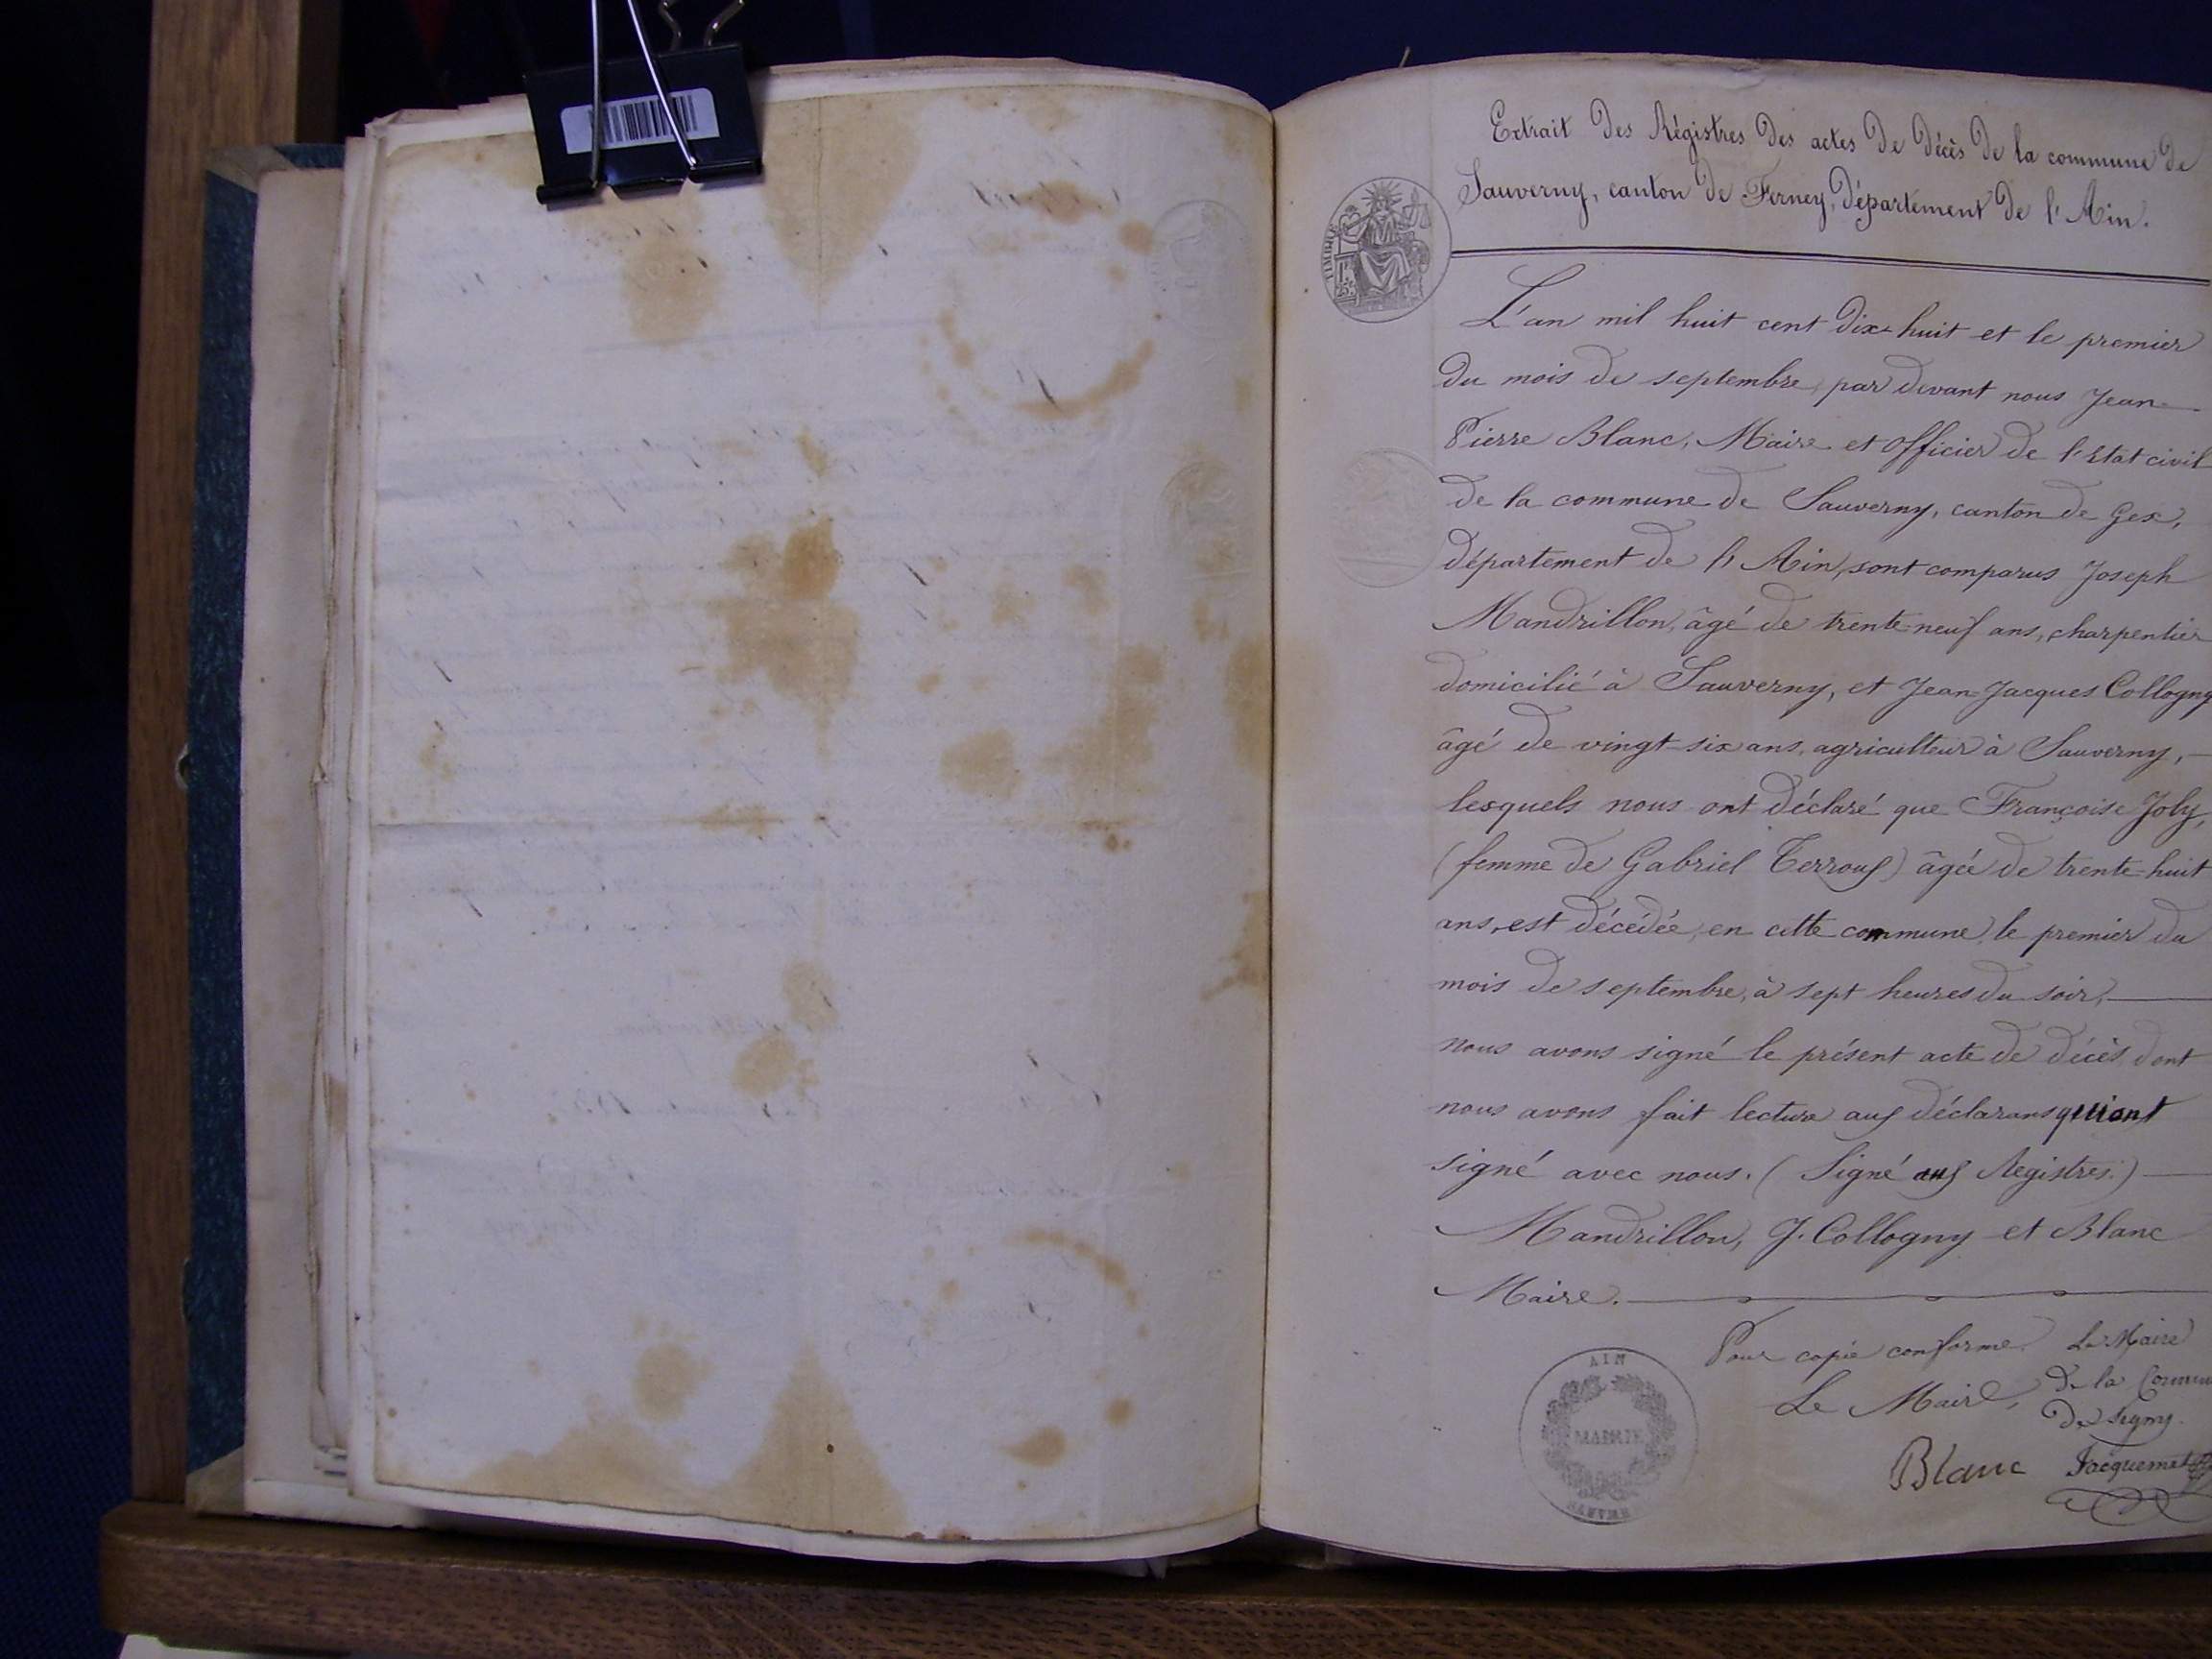 Extrait Des Régistres Des actes De Décès De la commune De
Sauverny, canton De Ferney, Département De l'Ain.
TIMBRE
L'an mil huit cent Dix-huit et le premier
Du mois De septembre, par devant nous Jean-
Pierre Blanc, Maire et officier De l'Etat civil
De la commune De Sauverny, canton De Gex,
Département De l'Ain, sont comparus Joseph
Mandrillon, âgé De trente-neuf ans, charpentier
Domicilié à Sauverny, et Jean-Jacques Collogny
âgé De vingt-six ans, agriculteur à Sauverny, —
lesquels nous ont Déclaré que Françoise Joly,
(femme De Gabriel Terroux) âgée De trente-huit
ans, est Décédée, en cette commune, le premier Du
mois De septembre, à sept heures Du soir, —
nous avons signé le présent acte De Décès, Dont
nous avons fait lecture aux Déclarans qui ont
signé avec nous. (Signé aux Registres.) —
Mandrillon, J. Collogny et Blanc
Maire. —
Pour copie conforme.
Le Maire,
Blanc
Le Maire
De la Commu
De Segny.
Jacquemet
AIN
MAIRIE